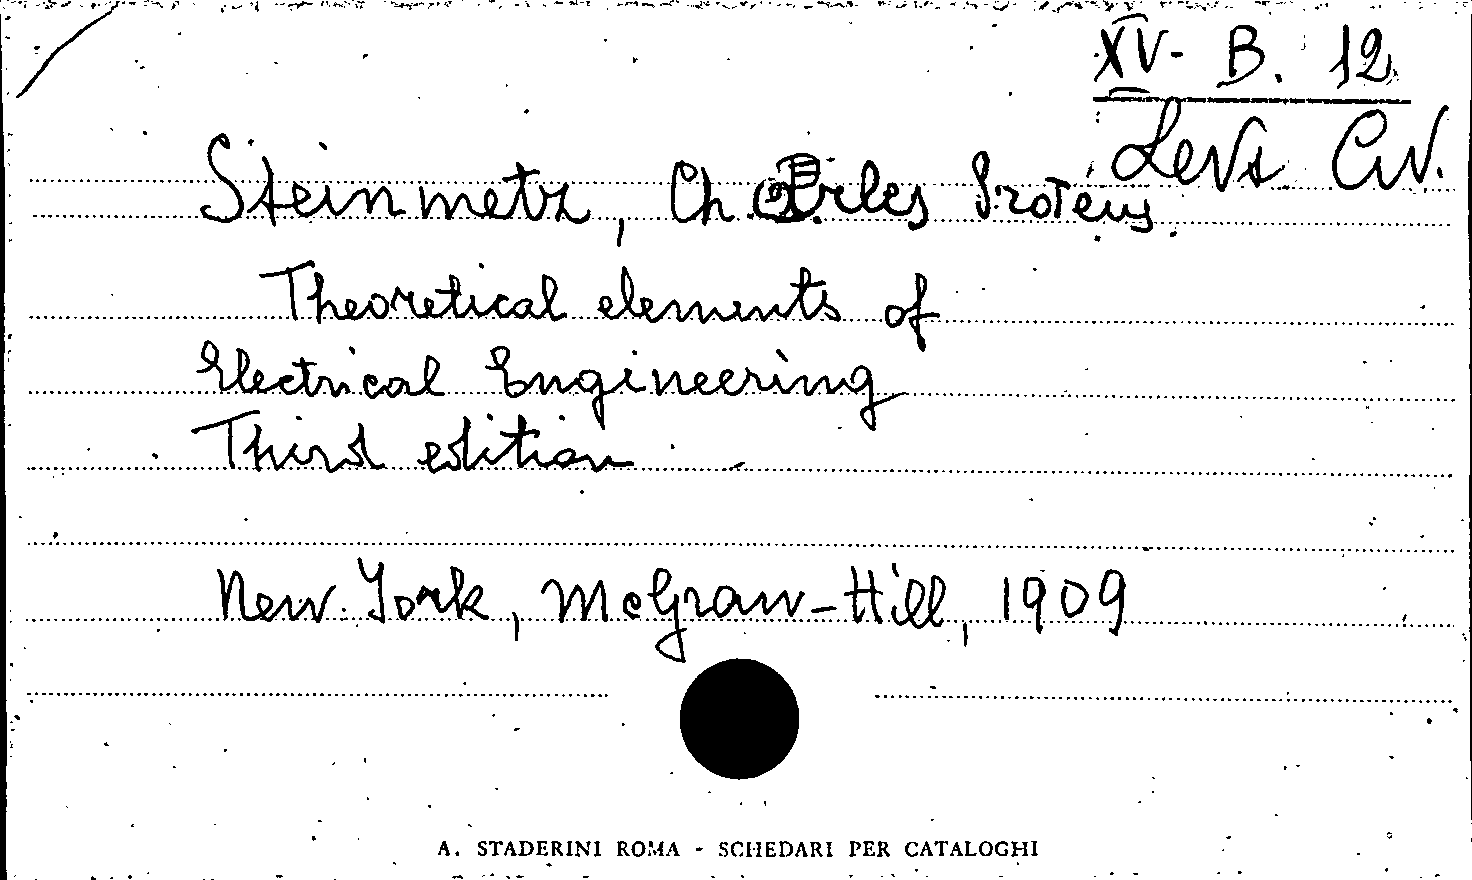 XV- B. 12
Levi Civ.
Steinmetz, Charles Proteus.
Theoretical elements of
Electrical Engineering
Third edition
New York, McGraw-Hill, 1909
A. STADERINI ROMA - SCHEDARI PER CATALOGHI